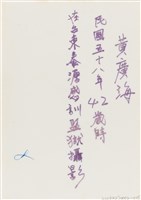 黃廣海
民國五十八年42歲時
在台東泰源感訓監獄攝影